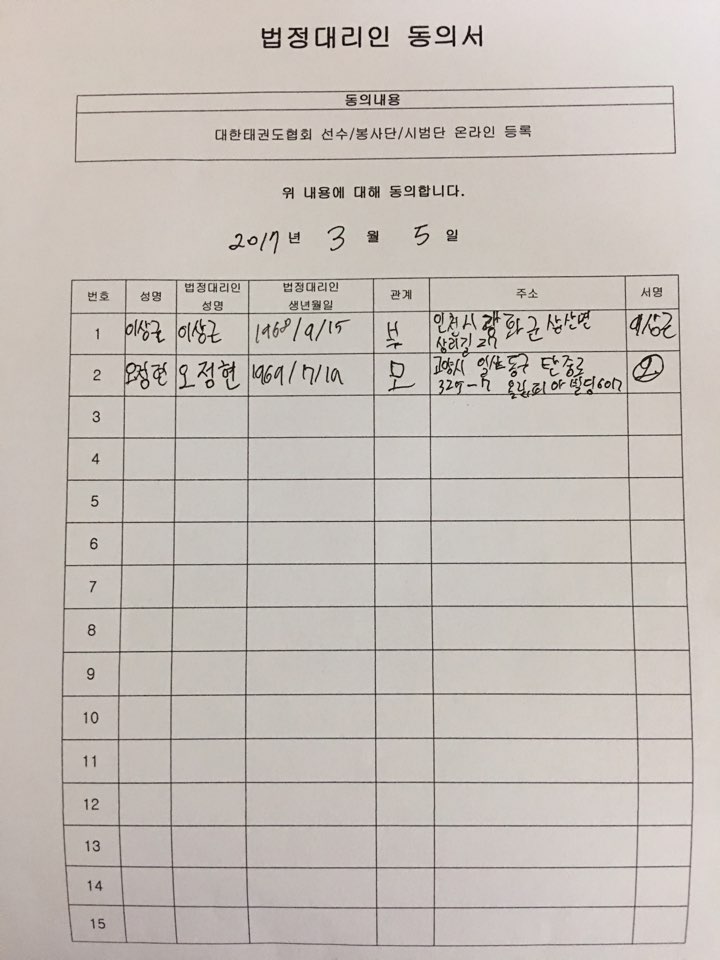 법정대리인 동의서
동의내용
대한태권도협회 선수/봉사단/시범단 온라인 등록
위 내용에 대해 동의합니다.
2017년 3 월 5 일
번호 성명 법정대리인 성명 법정대리인 생년월일 관계 주소 서명
1 이상근 이상근 1968/9/15 부 인천시 강화군 삼산면
상리길 27 이상근
2 오정현 오정현 1969/7/19 모 고양시 일산동구 탄중로
오
3
4
5
6
7
8
9
10
11
12
13
14
15